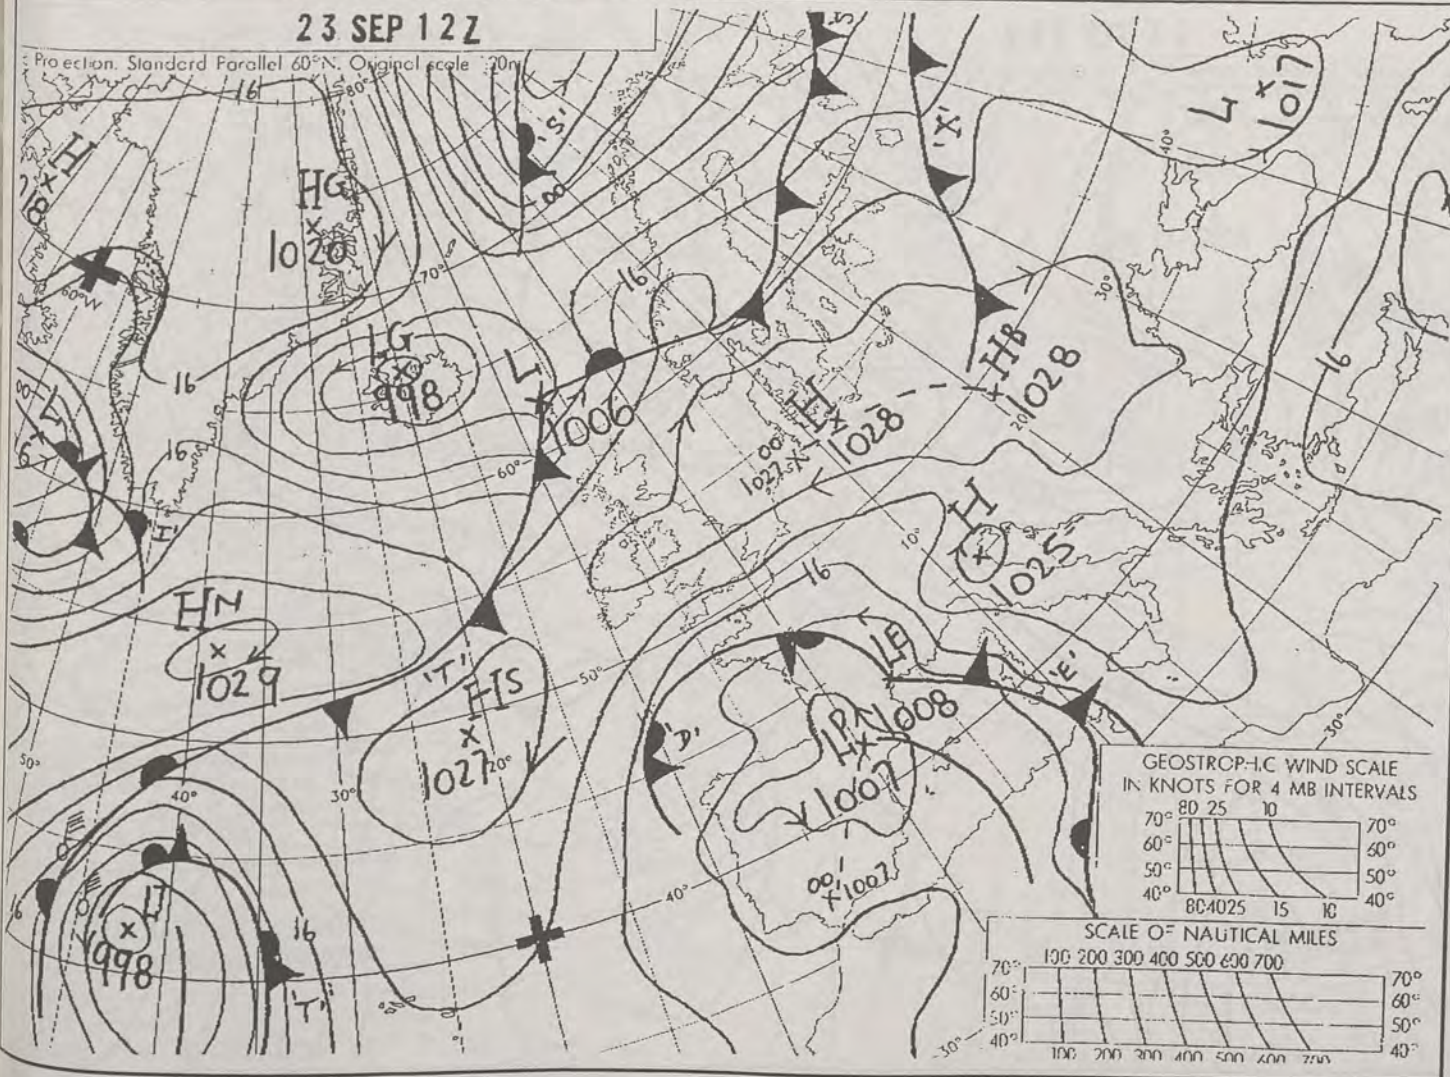 23 SEP 12Z
Projection. Standard Parallel 60°N. Original scale 20m
16
80°
'S'
'S'
'X'
L
1017
40°
H
8
HG
1020
00
70°
60°W
16
30°
HB
1028
LG
998
L
1006
16
H
1028
00
1027
20°
16
16
60°
H
1025
10°
16
HN
1029
'T'
HS
1027
50°
LE
1008
'E'
'D'
LD
1007
30°
50°
40°
30°
20°
00
1007
40°
LJ
998
16
16
'T'
30°
GEOSTROPHIC WIND SCALE
IN KNOTS FOR 4 MB INTERVALS
80 25 10
70° 70°
60° 60°
50° 50°
40° 40°
80 40 25 15 10
SCALE OF NAUTICAL MILES
100 200 300 400 500 600 700
70° 70°
60° 60°
50° 50°
40° 40°
100 200 300 400 500 600 700